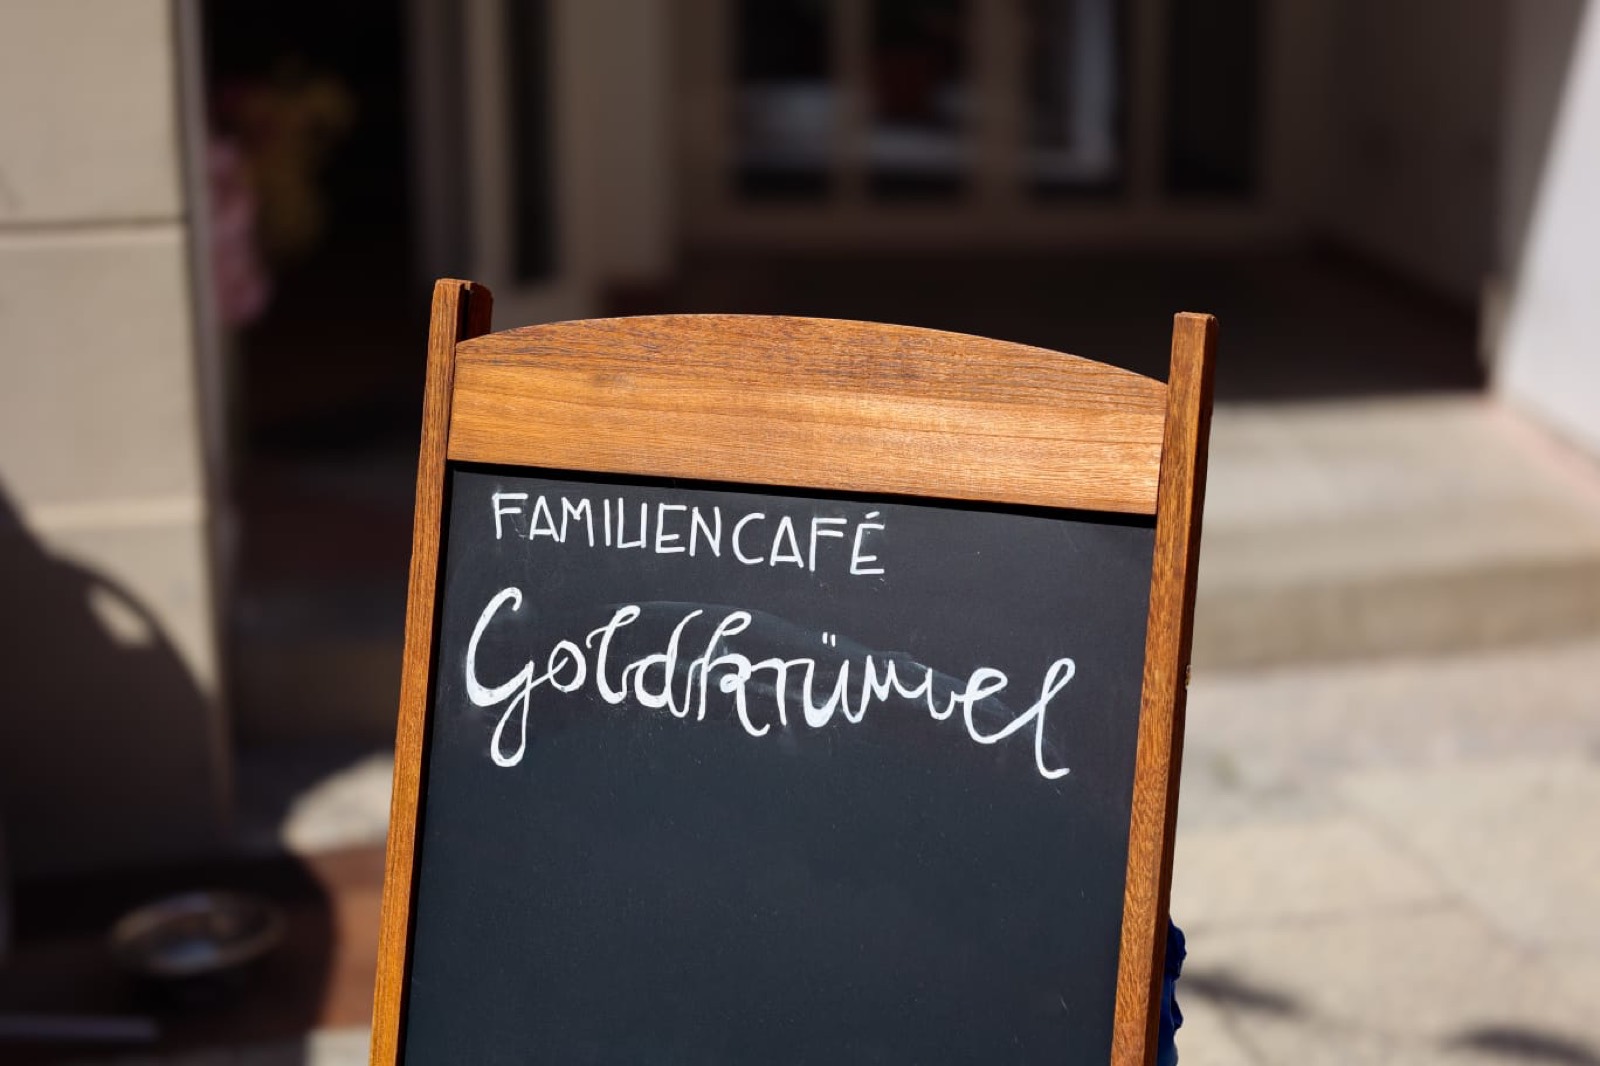 FAMILIENCAFÉ
Goldkrümel